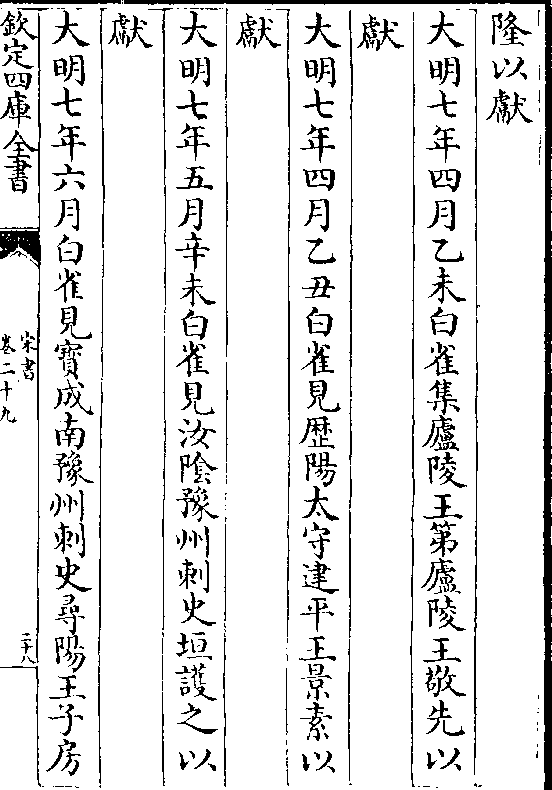 隆以獻
大明七年四月乙未白雀集廬陵王第廬陵王敬先以
獻
大明七年四月乙丑白雀見歴陽太守建平王景素以
獻
大明七年五月辛未白雀見汝陰豫州刺史垣護之以
獻
大明七年六月白雀見寳成南豫州刺史尋陽王子房
欽定四庫全書
宋書
卷二十九
二十八